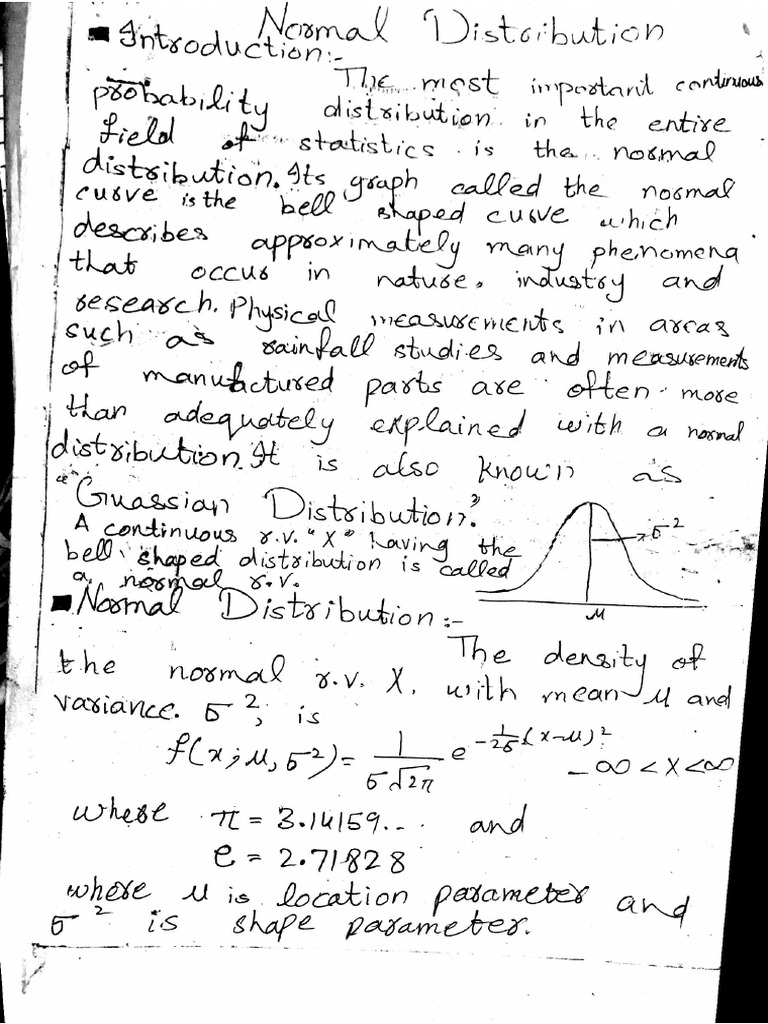 Normal Distribution
Introduction:-
The most important continuous
probability distribution in the entire
field of statistics is the normal
distribution. Its graph called the normal
curve is the bell shaped curve which
describes approximately many phenomena
that occur in nature, industry and
research. Physical measurements in areas
such as rainfall studies and measurements
of manufactured parts are often more
than adequately explained with a normal
distribution. It is also known as
"Guassian Distribution".
A continuous r.v. "X" having the
bell shaped distribution is called
a normal r.v.
σ²
μ
Normal Distribution:-
The density of
the normal r.v. X, with mean μ and
variance σ², is
f(x; μ, σ²) = 1/(σ√2π) e^(-1/2σ (x-μ)²) -∞ < X < ∞
where π = 3.14159... and
e = 2.71828
where μ is location parameter and
σ² is shape parameter.